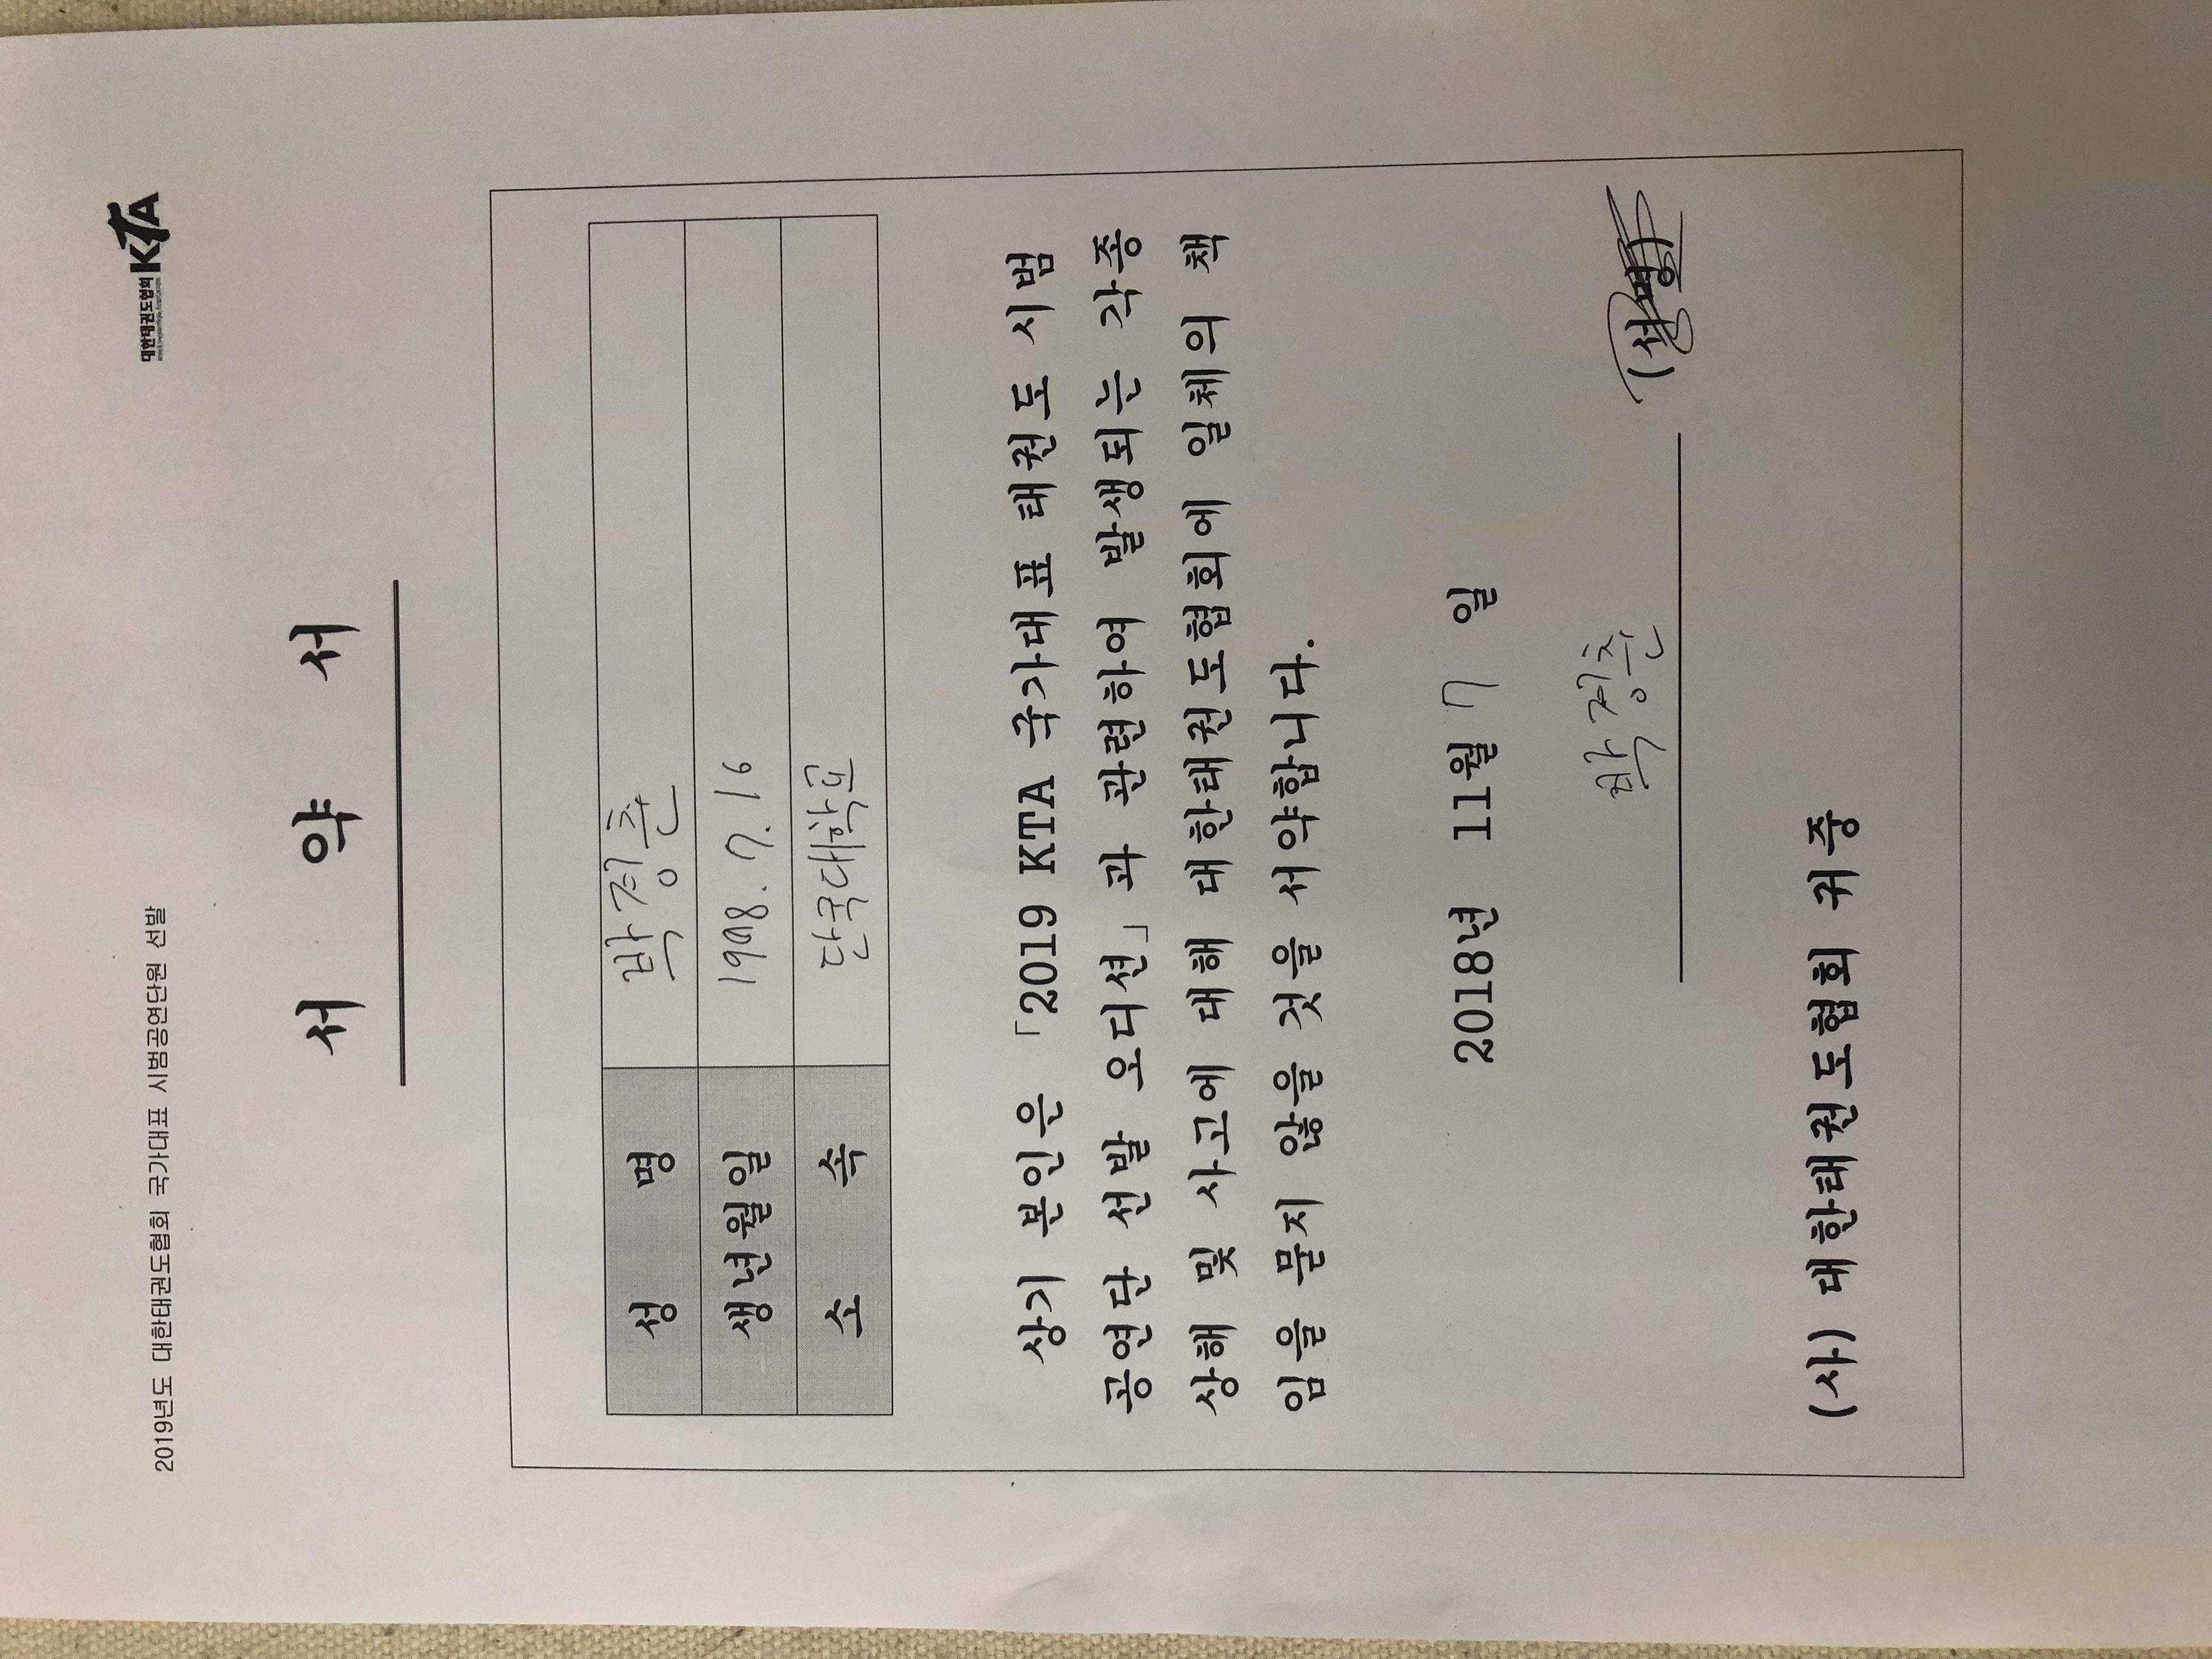 2019년도 대한태권도협회 국가대표 시범공연단원 선발
대한태권도협회 KTA
서 약 서
성 명 박정훈
생년월일 1998. 7. 16
소 속 단국대학교
상기 본인은 「2019 KTA 국가대표 태권도 시범
공연단 선발 오디션」과 관련하여 발생되는 각종
상해 및 사고에 대해 대한태권도협회에 일체의 책
임을 묻지 않을 것을 서약합니다.
2018년 11월 7 일
(서명)
(사) 대한태권도협회 귀중